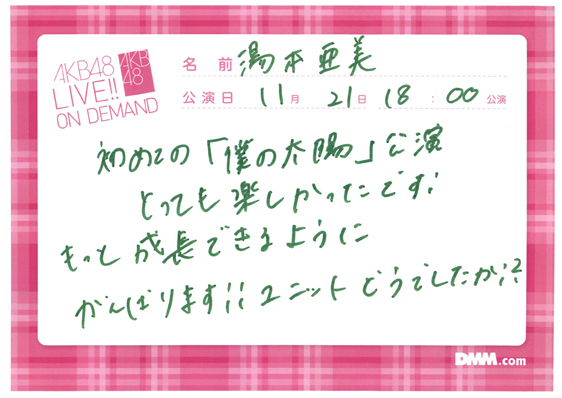 AKB48
LIVE!!
ON DEMAND
AKB
48
名前 湯本亜美
公演日 11月 21日 18:00公演
初めての「僕の太陽」公演
とっても楽しかったです!
もっと成長できるように
がんばります!! ユニットどうでしたか!?
DMM.com